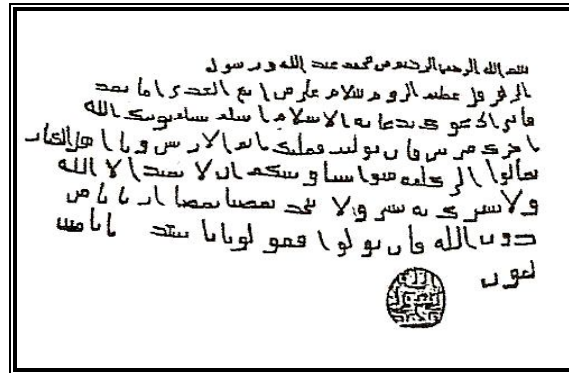 بسم الله الرحمن الرحيم من محمد عبد الله ورسول
الى هرقل عظيم الروم سلام على من اتبع الهدى اما بعد
فانى ادعوك بدعاية الاسلام اسلم تسلم يوتك الله
اجرك مرتين فان توليت فعليك اثم الاريسين ويا اهل الكتاب
تعالوا الى كلمة سوا بيننا وبينكم ان لا نعبد الا الله
ولا نشرك به شى ولا يتخذ بعضنا بعضا اربابا من
دون الله فان تولوا فقولوا بانا مس
لمون